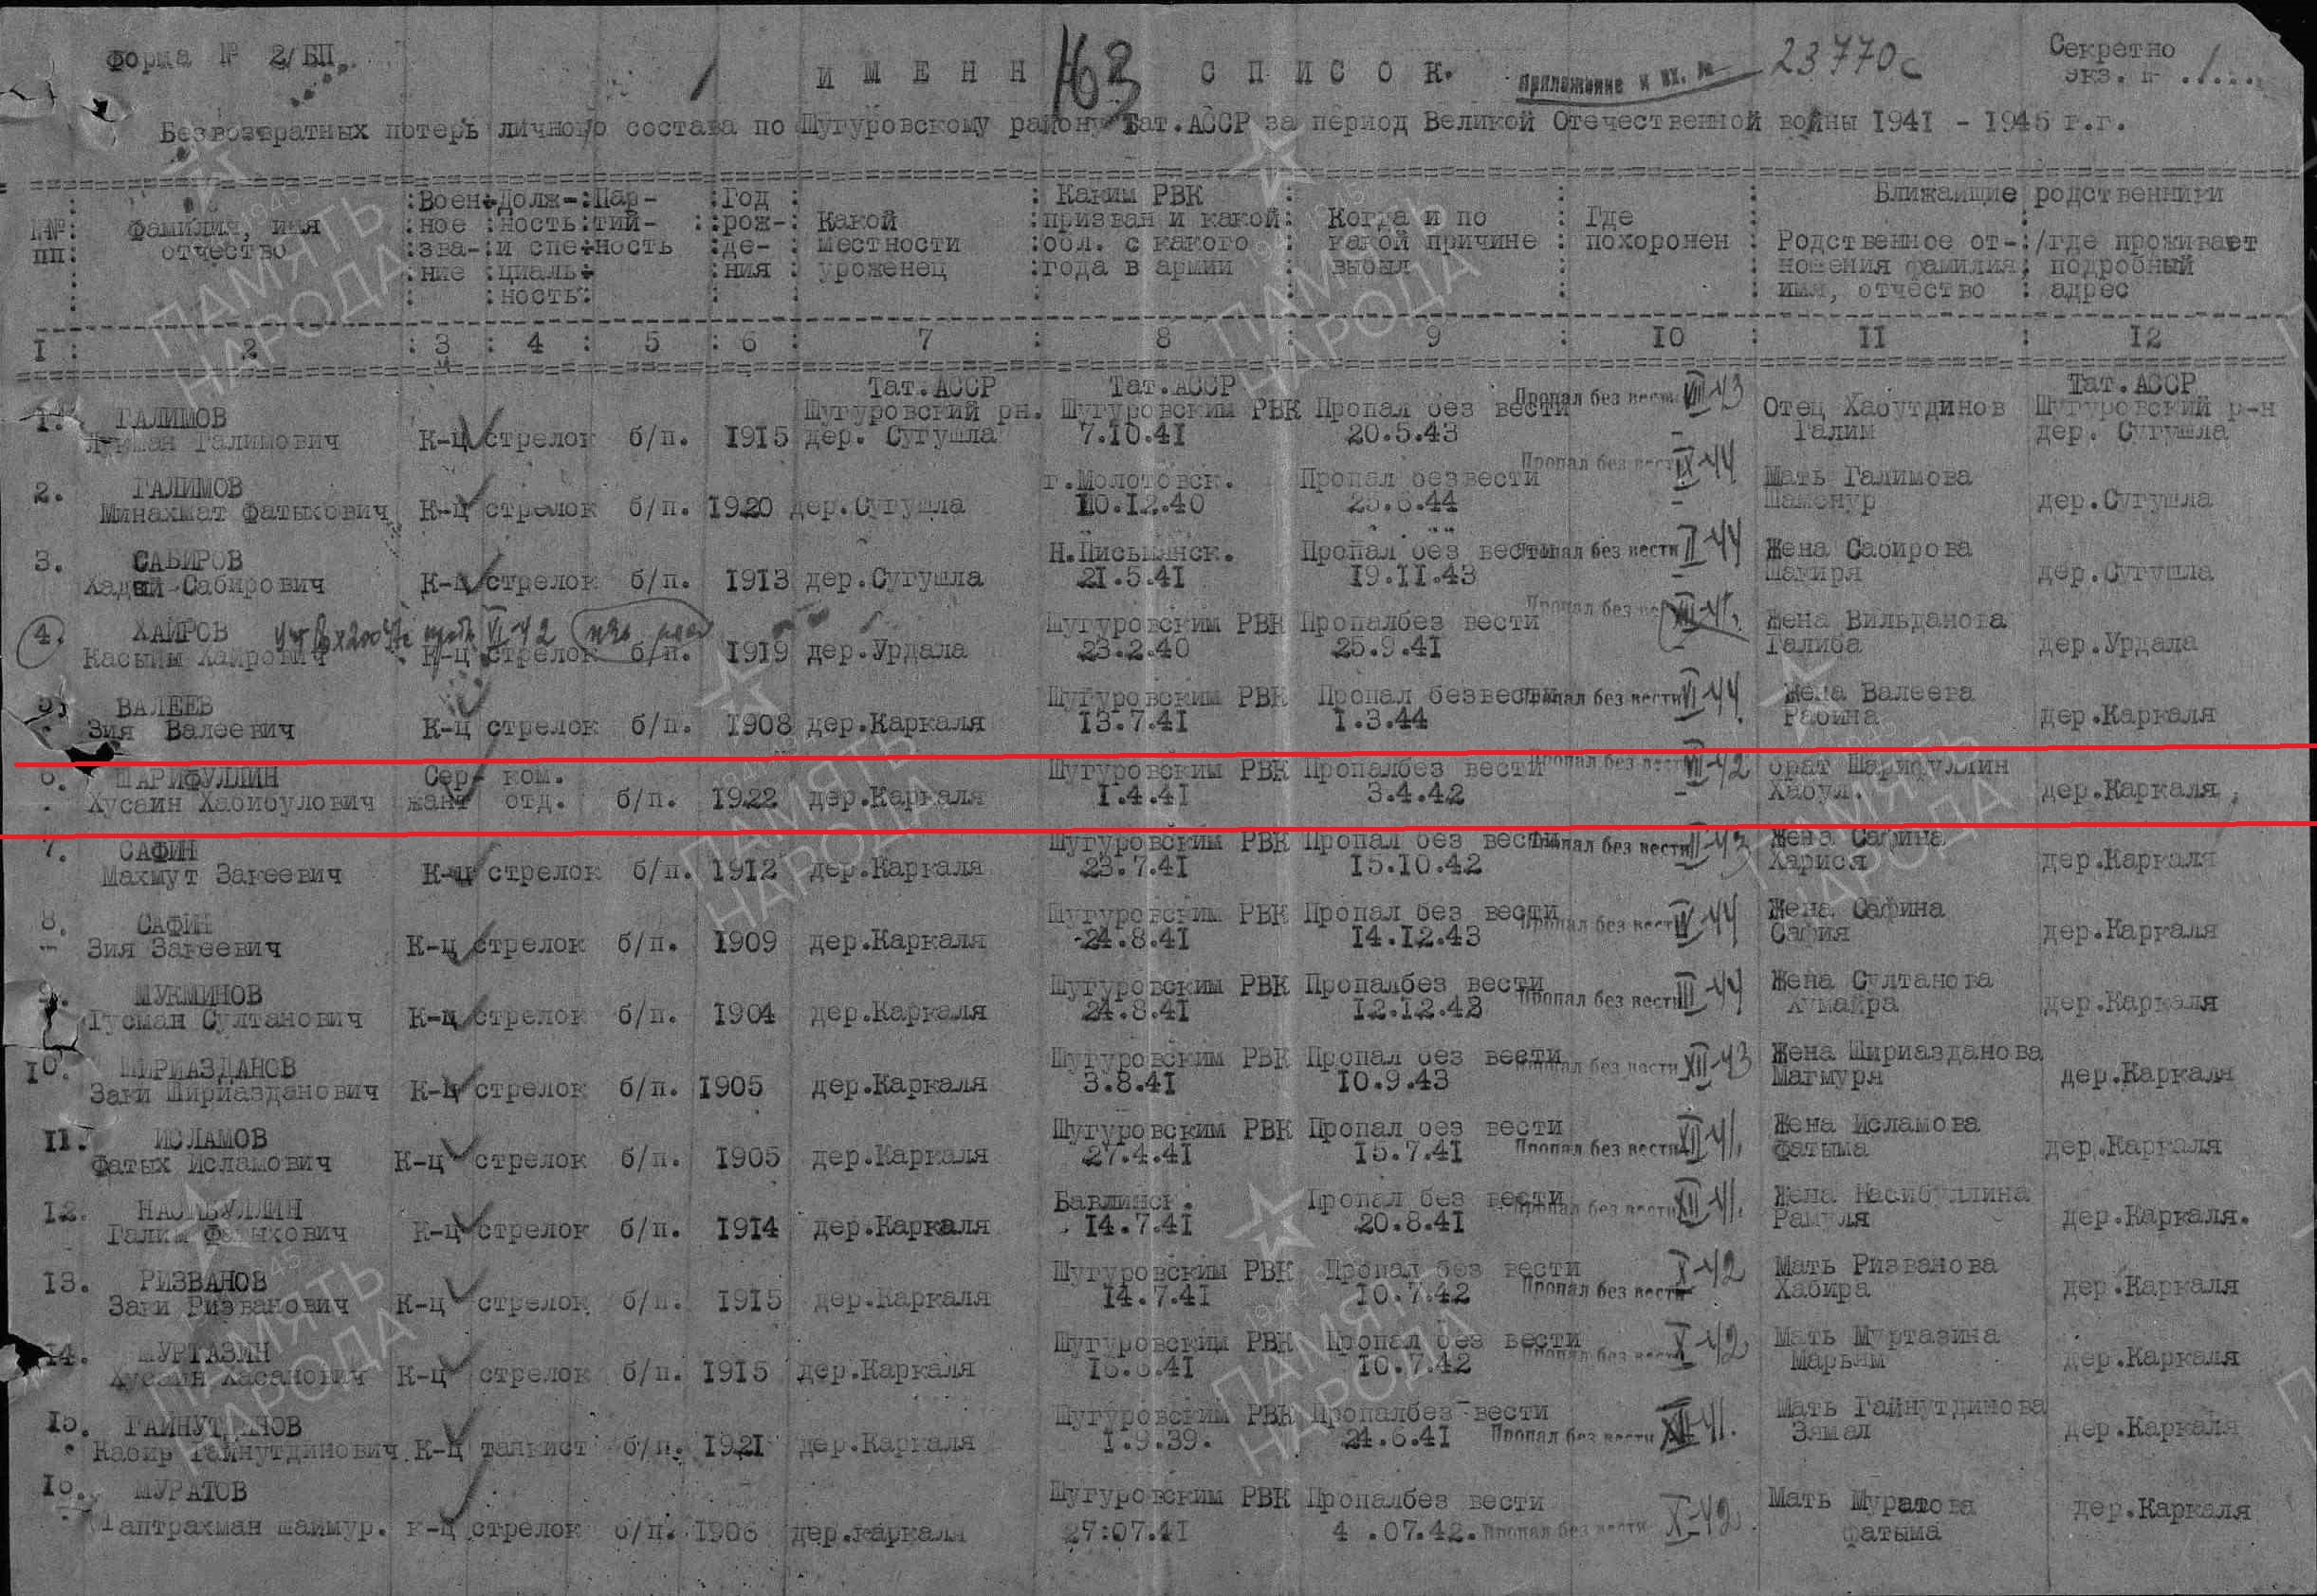 Форма № 2/БП
ИМЕНН СПИСОК.
163
Приложение к вх. №
23770с
Секретно
экз. № 1
Безвозвратных потерь личного состава по Шугуровскому району Тат.АССР за период Великой Отечественной войны 1941 - 1945 г.г.
№№ пп
Фамилия, имя отчество
Воен- ное зва- ние
Долж- ность и спе- циаль- ность
Пар- тий- ность
Год рож- де- ния
Какой местности уроженец
Каким РВК призван и какой обл. с какого года в армии
Когда и по какой причине выбыл
Где похоронен
Ближайшие родственники
Родственное от- ношения фамилия, имя, отчество
/где проживает подробный адрес
1 2 3 4 5 6 7 8 9 10 11 12
Тат.АССР Тат.АССР Пропал без вести VIII-43 Тат.АССР
1. ГАЛИМОВ Шугуровский рн. Шугуровским РВК Пропал без вести Отец Хабутдинов Шугуровский р-н
Галимович К-ц стрелок б/п. 1915 дер. Сугушла 7.10.41 20.5.43 - Галим дер. Сугушла
2. ГАЛИМОВ г.Молотовск. Пропал безвести Пропал без вести IX-44 Мать Галимова
Минахмат Фатыкович К-ц стрелок б/п. 1920 дер.Сугушла 10.12.40 25.6.44 - Шамонур дер.Сугушла
3. САБИРОВ Н.Письмянск. Пропал без вести Пропал без вести II-44 Жена Сабирова
Хадый Сабирович К-ц стрелок б/п. 1913 дер.Сугушла 21.5.41 19.11.43 - Шакиря дер.Сугушла
4. ХАИРОВ VI-42 Шугуровским РВК Пропалбез вести Пропал без вести Жена Вильданова
Касыйм Хайрович К-ц стрелок б/п. 1919 дер.Урдала 23.2.40 25.9.41 - Галиба дер.Урдала
5. ВАЛЕЕВ Шугуровским РВК Пропал безвести Пропал без вести VI-44. Жена Валеева
Зия Валеевич К-ц стрелок б/п. 1908 дер.Каркаля 13.7.41 1.3.44 Рабина дер.Каркаля
6. ШАРИФУЛЛИН Сер- ком. Шугуровским РВК Пропалбез вести Пропал без вести VII-42 брат Шарифуллин
Хусаин Хабибулович жант отд. б/п. 1922 дер.Каркаля 1.4.41 3.4.42 - Хабул. дер.Каркаля
7. САФИН Шугуровским РВК Пропал без вести Пропал без вести II-43 Жена Сафина
Махмут Закеевич К-ц стрелок б/п. 1912 дер.Каркаля 23.7.41 15.10.42 - Харися дер.Каркаля
8. САФИН Шугуровским РВК Пропал без вести Пропал без вести IV-44 Жена Сафина
Зия Закеевич К-ц стрелок б/п. 1909 дер.Каркаля 24.8.41 14.12.43 Сафия дер.Каркаля
9. МУКМИНОВ Шугуровским РВК Пропалбез вести Пропал без вести III-44 Жена Султанова
Гусман Султанович К-ц стрелок б/п. 1904 дер.Каркаля 24.8.41 12.12.43 Хумайра дер.Каркаля
10. ШИРИАЗДАНОВ Шугуровским РВК Пропал без вести Пропал без вести XII-43 Жена Шириазданова
Заки Шириазданович К-ц стрелок б/п. 1905 дер.Каркаля 3.8.41 10.9.43 Магмуря дер.Каркаля
11. ИСЛАМОВ Шугуровским РВК Пропал без вести Пропал без вести XII-41. Жена Исламова
Фатых Исламович К-ц стрелок б/п. 1905 дер.Каркаля 27.4.41 15.7.41 Фатыма дер.Каркаля
12. НАСИБУЛЛИН Бавлинск. Пропал без вести Пропал без вести XII-41. Жена Насибуллина
Галим Фатыхович К-ц стрелок б/п. 1914 дер.Каркаля 14.7.41 20.8.41 Рамуля дер.Каркаля.
13. РИЗВАНОВ Шугуровским РВК Пропал без вести Пропал без вести X-42 Мать Ризванова
Заки Ризванович К-ц стрелок б/п. 1915 дер.Каркаля 14.7.41 10.7.42 Хабира дер.Каркаля
14. МУРТАЗИН Шугуровским РВК Пропал без вести Пропал без вести X-42 Мать Муртазина
Хусаин Хасанович К-ц стрелок б/п. 1915 дер.Каркаля 10.7.42 Марьям дер.Каркаля
15. ГАЙНУТДИНОВ Шугуровским РВК Пропалбез вести Мать Гайнутдинова
Кабир Гайнутдинович К-ц танкист б/п. 1921 дер.Каркаля 1.9.39. 24.6.41 Пропал без вести XII-41. Зямал дер.Каркаля
16. МУРАТОВ Шугуровским РВК Пропалбез вести Мать Муратова дер.Каркаля
Гаптрахман Шаймур. к-ц стрелок б/п. 1906 дер.Каркаля 27:07.41 4 .07.42. Пропал без вести X-42. Фатыма
ПАМЯТЬ НАРОДА
1941-1945